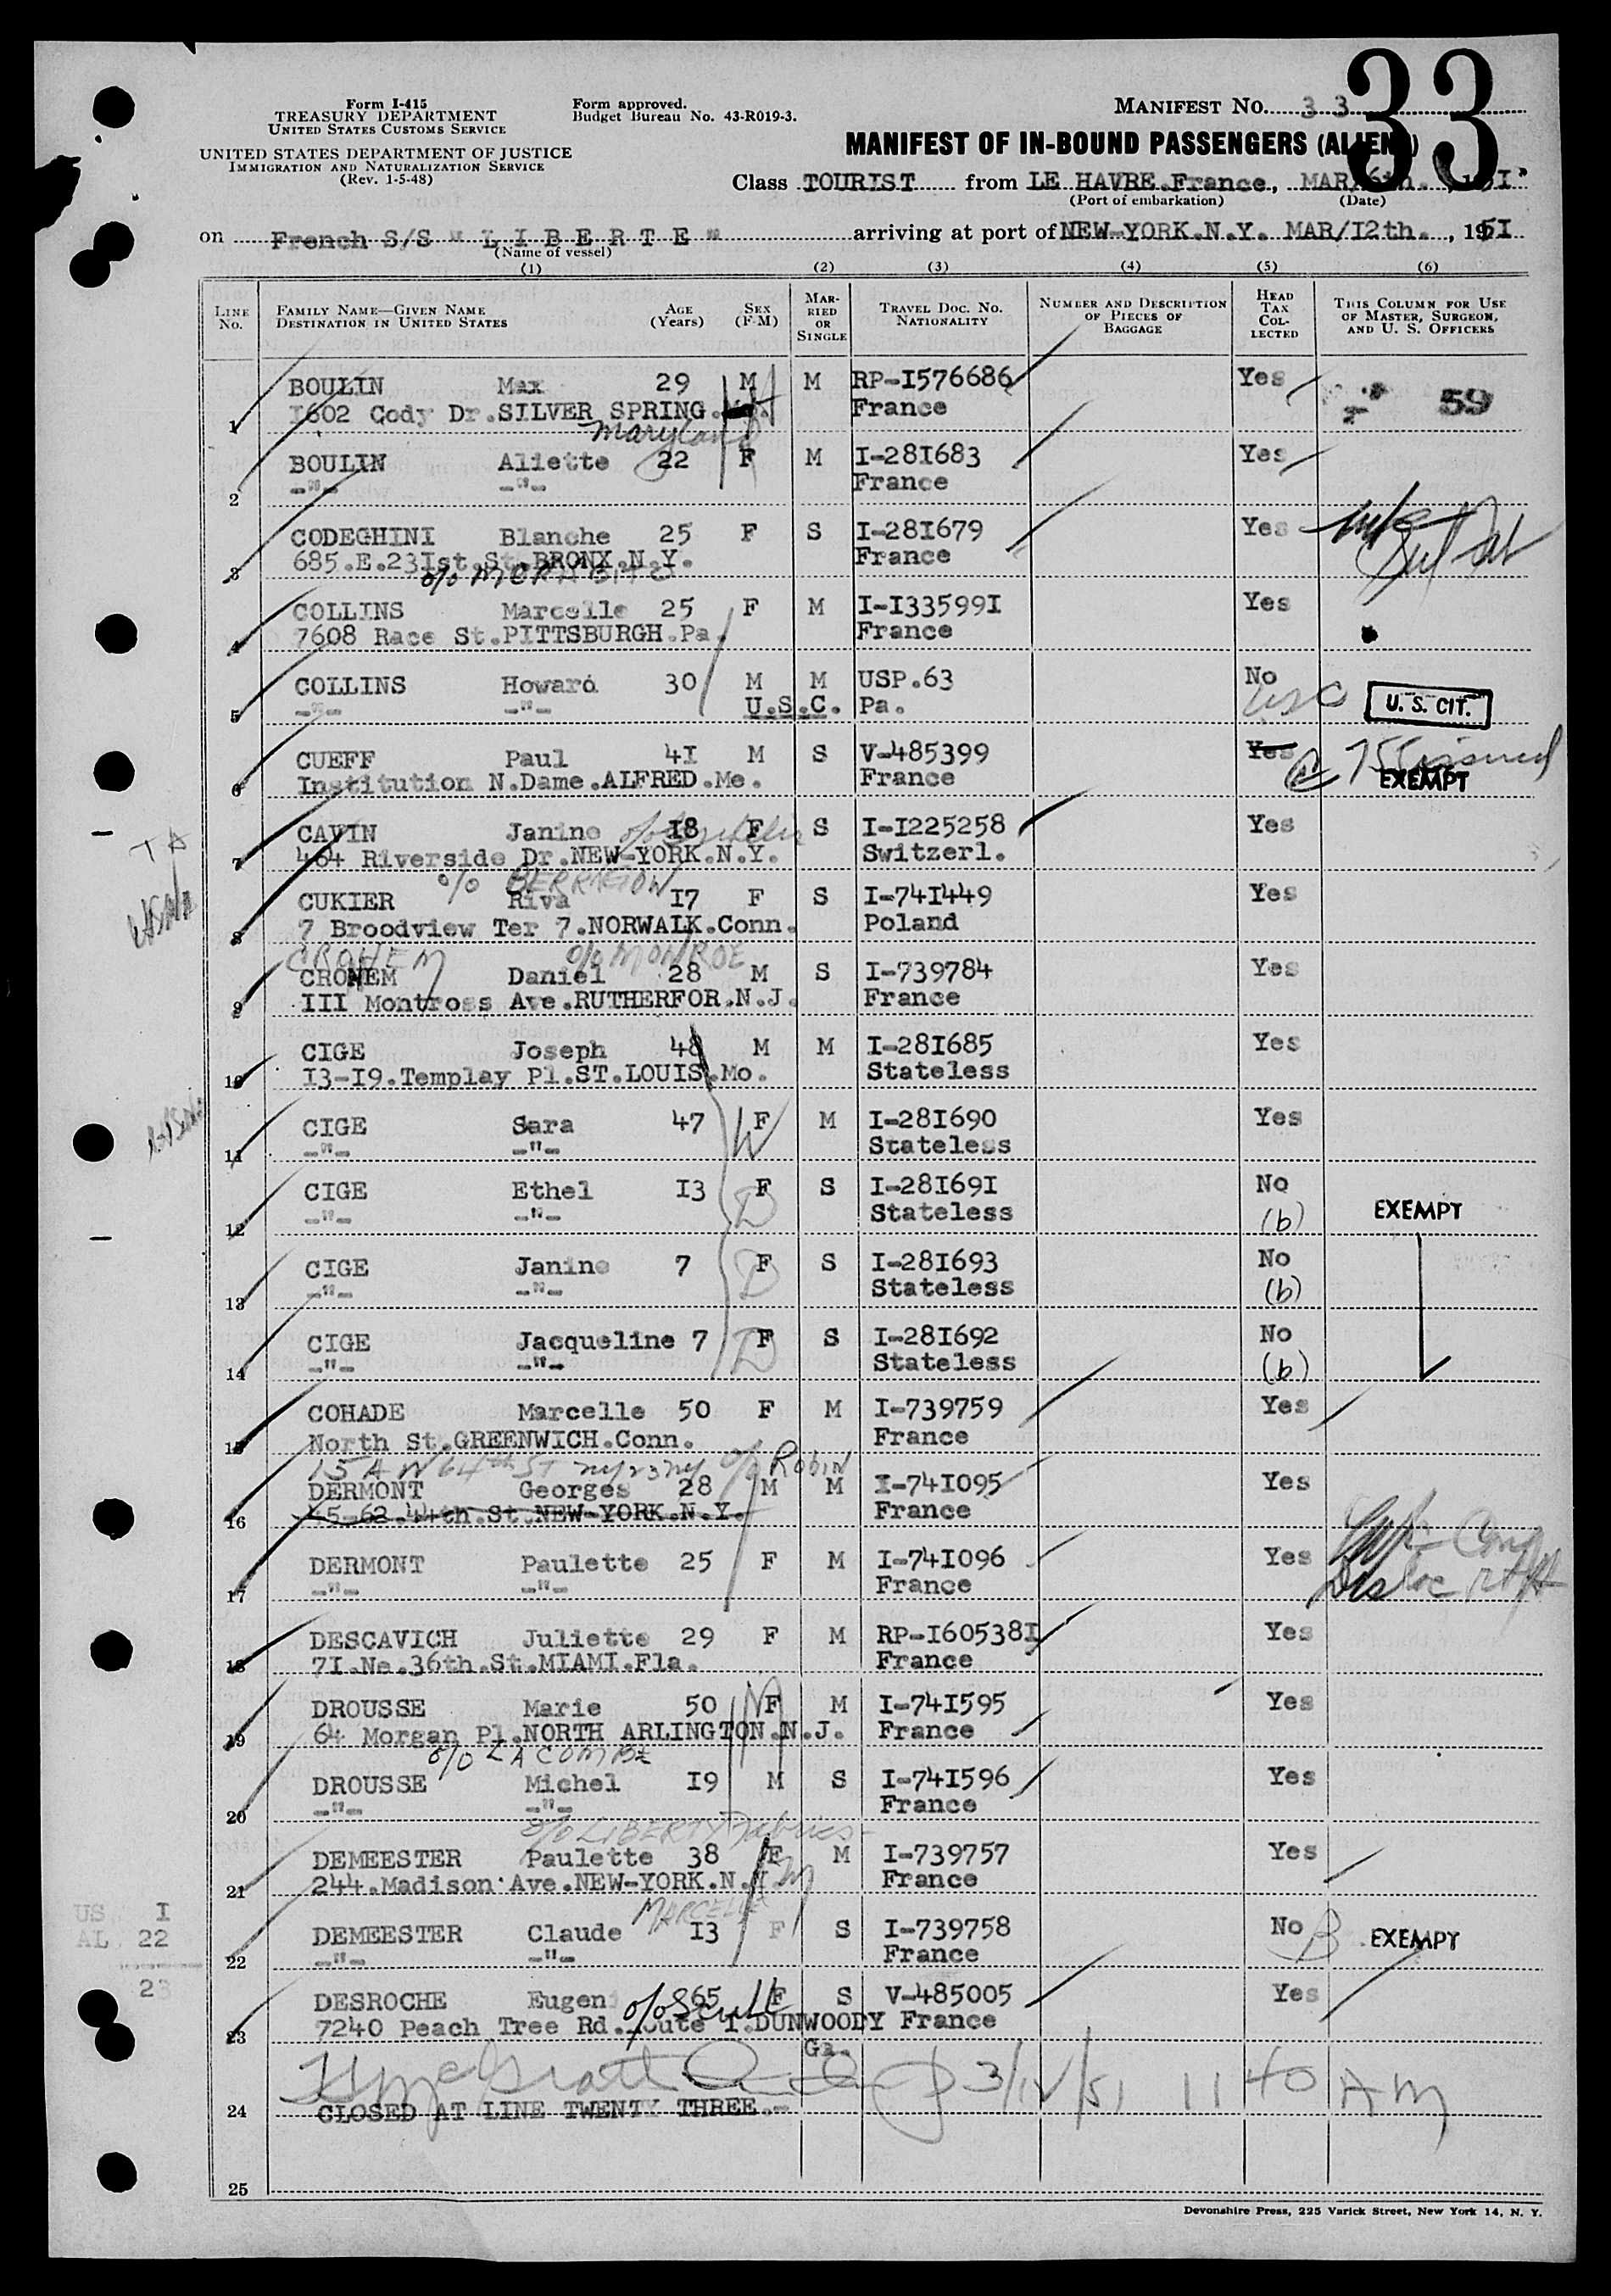 33
Form I-415
TREASURY DEPARTMENT
UNITED STATES CUSTOMS SERVICE
UNITED STATES DEPARTMENT OF JUSTICE
IMMIGRATION AND NATURALIZATION SERVICE
(Rev. 1-5-48)
Form approved.
Budget Bureau No. 43-R019-3.
MANIFEST NO. 33
MANIFEST OF IN-BOUND PASSENGERS (ALIENS)
Class TOURIST from LE HAVRE.France, MAR/6th. , 1951.
(Port of embarkation) (Date)
on French S/S " L I B E R T E " arriving at port of NEW-YORK.N.Y. MAR/I2th. , 1951
(Name of vessel)
(1) (2) (3) (4) (5) (6)
LINE No. FAMILY NAME—GIVEN NAME DESTINATION IN UNITED STATES AGE (Years) SEX (F-M) MARRIED OR SINGLE TRAVEL DOC. NO. NATIONALITY NUMBER AND DESCRIPTION OF PIECES OF BAGGAGE HEAD TAX COLLECTED THIS COLUMN FOR USE OF MASTER, SURGEON, AND U. S. OFFICERS
BOULIN Max 29 M M RP-I576686 Yes 59
1 I602 Cody Dr.SILVER SPRING. France
Maryland
BOULIN Aliette 22 F M I-28I683 Yes
2 -"- -"- France
CODEGHINI Blanche 25 F S I-28I679 Yes
3 685.E.23Ist.St.BRONX.N.Y. France
c/o MORABITO
COLLINS Marcelle 25 F M I-I33599I Yes
4 7608 Race St.PITTSBURGH.Pa. France
COLLINS Howard 30 M M USP.63 No
5 -"- -"- U.S.C. Pa. USC U. S. CIT.
CUEFF Paul 4I M S V-485399 Yes
6 Institution N.Dame.ALFRED.Me. France EXEMPT
CAVIN Janine I8 F S I-I225258 Yes
7 464 Riverside Dr.NEW-YORK.N.Y. Switzerl.
c/o BERRINTON
CUKIER Riva I7 F S I-74I449 Yes
8 7 Broodview Ter 7.NORWALK.Conn. Poland
CROHEM c/o MONROE
CRONEM Daniel 28 M S I-739784 Yes
9 III Montross Ave.RUTHERFOR.N.J. France
CIGE Joseph 48 M M I-28I685 Yes
10 I3-I9.Templay Pl.ST.LOUIS.Mo. Stateless
CIGE Sara 47 F M I-28I690 Yes
11 -"- -"- W Stateless
CIGE Ethel I3 F S I-28I69I No
12 -"- -"- D Stateless (b) EXEMPT
CIGE Janine 7 F S I-28I693 No
13 -"- -"- D Stateless (b)
CIGE Jacqueline 7 F S I-28I692 No
14 -"- -"- D Stateless (b)
COHADE Marcelle 50 F M I-739759 Yes
15 North St.GREENWICH.Conn. France
15 A W 64th ST ny 23 ny c/o Robin
DERMONT Georges 28 M M I-74I095 Yes
16 45-62.44th.St.NEW-YORK.N.Y. France
DERMONT Paulette 25 F M I-74I096 Yes
17 -"- -"- France
DESCAVICH Juliette 29 F M RP-I60538I Yes
18 7I.Ne.36th.St.MIAMI.Fla. France
DROUSSE Marie 50 F M I-74I595 Yes
19 64 Morgan Pl.NORTH ARLINGTON.N.J. France
c/o LACOMBE
DROUSSE Michel I9 M S I-74I596 Yes
20 -"- -"- France
c/o LIBERTY Fabrics
DEMEESTER Paulette 38 F M I-739757 Yes
21 244.Madison Ave.NEW-YORK.N.Y. France
MARCELLE
DEMEESTER Claude I3 F S I-739758 No B EXEMPT
22 -"- -"- France
US. I
AL. 22
23
DESROCHE Eugen 65 F S V-485005 Yes
23 7240 Peach Tree Rd. Route I.DUNWOODY France
Ga.
3/12/51 11 40 AM
24 CLOSED AT LINE TWENTY THREE.-
25
Devonshire Press, 225 Varick Street, New York 14, N. Y.